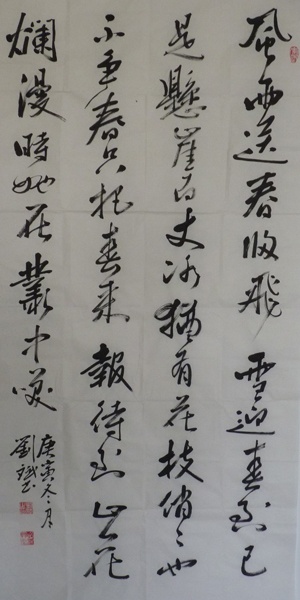 風雨送春歸飛雪迎春到已
是懸崖百丈冰猶有花枝俏々也
不爭春只把春來報待到山花
爛漫時她在叢中笑
庚寅冬月
劉